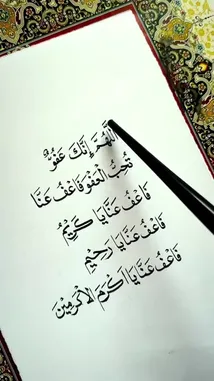 اللَّهُمَّ إِنَّكَ عَفُوٌّ
تُحِبُّ الْعَفْوَ فَاعْفُ عَنَّا
فَاعْفُ عَنَّا يَا كَرِيْمُ
فَاعْفُ عَنَّا يَا رَحِيْمُ
فَاعْفُ عَنَّا يَا اَكْرَمَ الْاَكْرَمِيْنَ